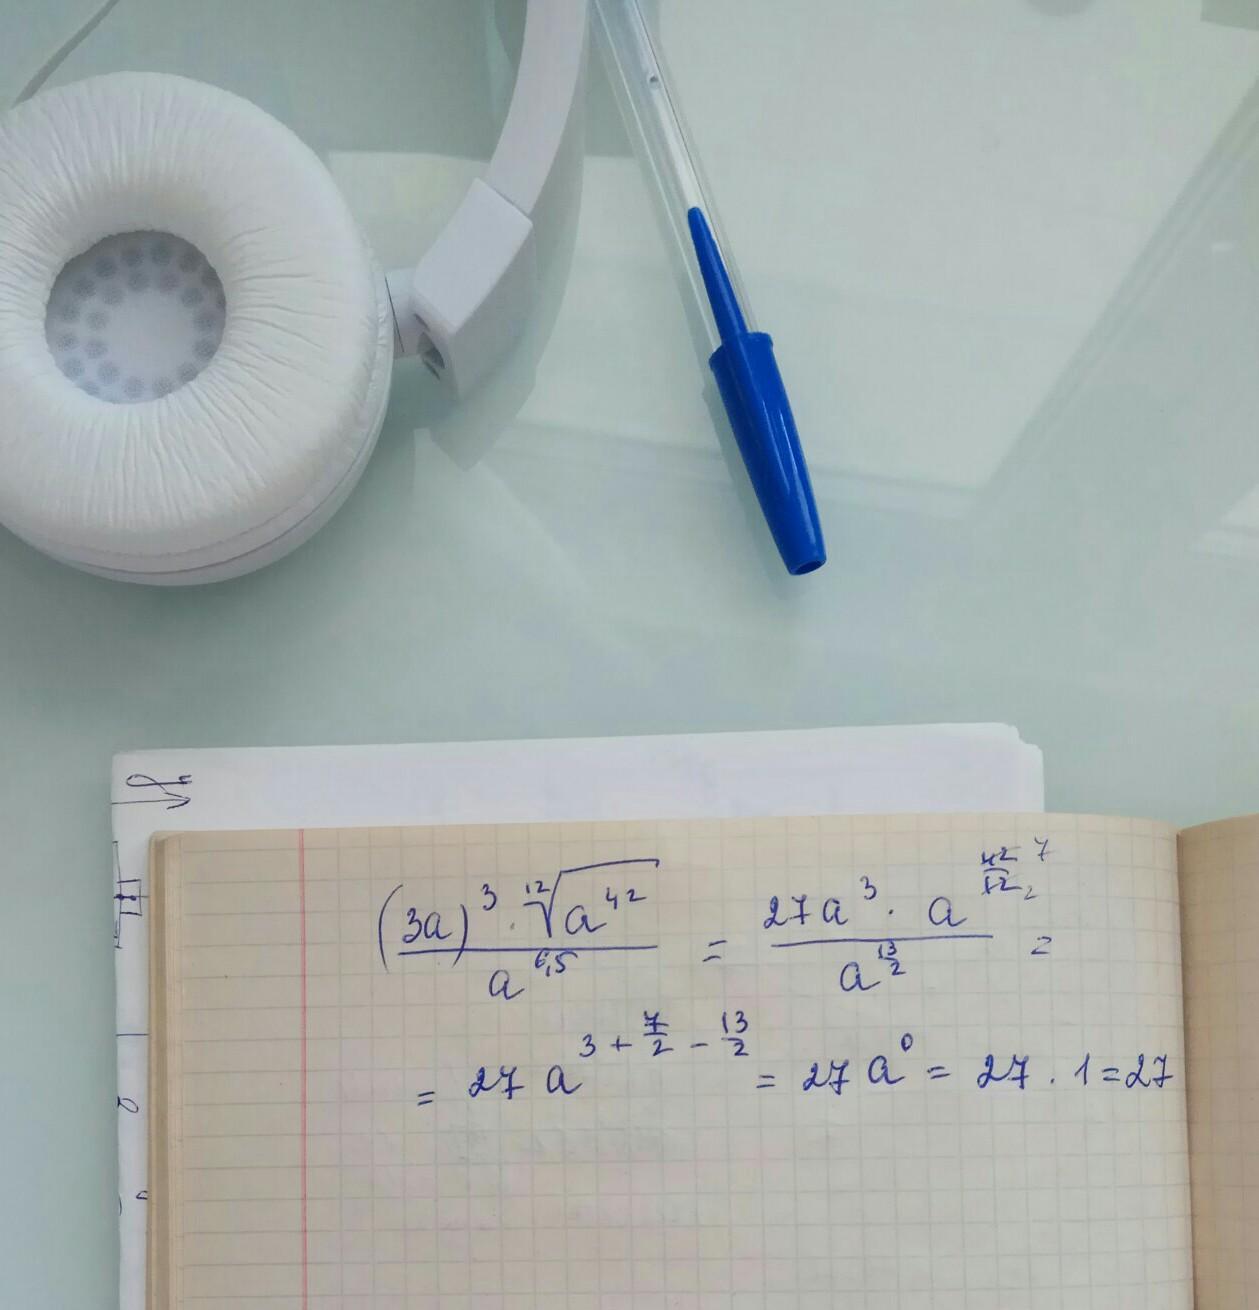 (3a)³ · ¹²√a⁴² / a^6,5 = 27a³ · a^(42/12) 7/2 / a^(13/2) =
= 27 a^(3 + 7/2 - 13/2) = 27 a⁰ = 27 · 1 = 27